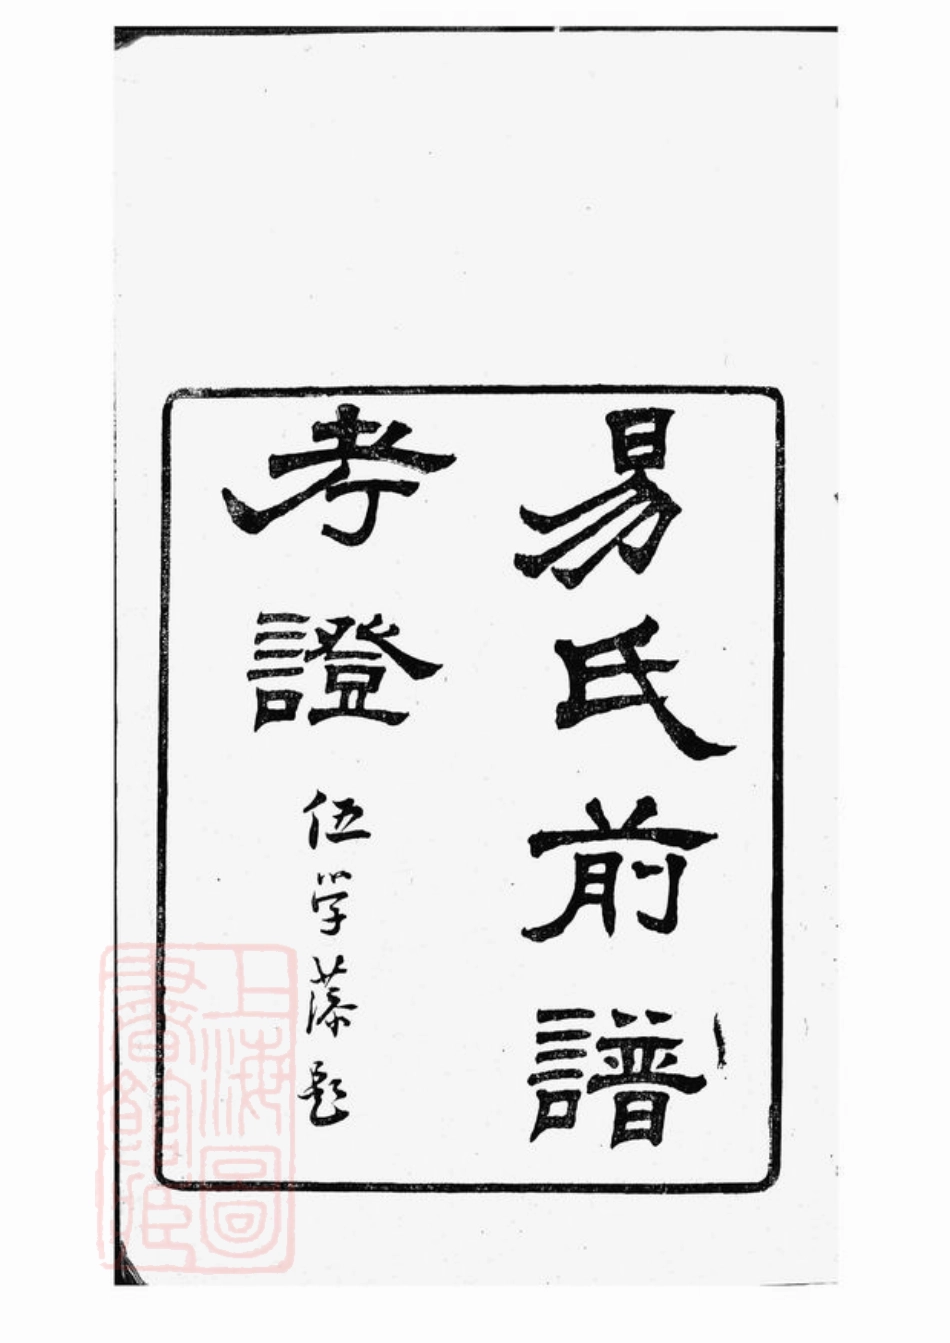 易氏前譜
考證
伍学藻題
上海圖
書館藏